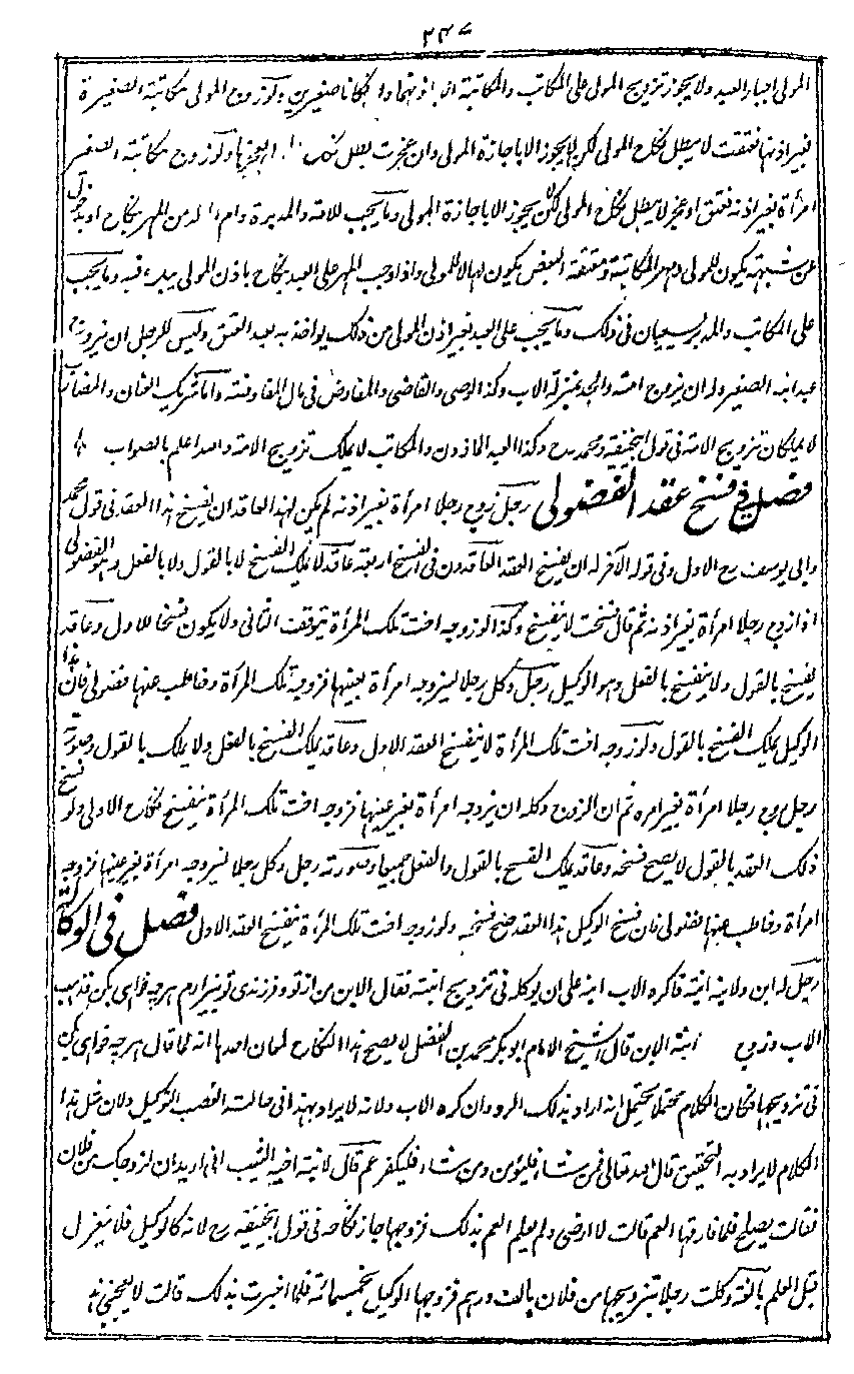 ٢٤٧
المولى اجبار العبد ولا يجوز تزويج المولى على المكاتب والمكاتبة الا باذنهما وان كانا صغيرين ولو زوج المولى مكاتبة الصغيرة
بغير اذنها فعتقت لا يبطل نكاح المولى لكن لا يجوز الا باجازة المولى وان عجزت بطل ولو زوج مكاتبه الصغير
امرأة بغير اذنه فعتق او عجز لا يبطل نكاح المولى لكن لا يجوز الا باجازة المولى وما يجب للامة والمدبرة وام الولد من المهر بنكاح او بدخول
عن شبهة يكون للمولى ومهر المكاتبة ومعتقة البعض يكون لها لا للمولى واذا وجب المهر على العبد بنكاح باذن المولى يباع فيه وما يجب
على المكاتب والمدبر يسعيان فى ذلك وما يجب على العبد بغير اذن المولى من ذلك يواخذ به بعد العتق وليس للرجل ان يزوج
عبد ابنه الصغير وله ان يزوج امته والجد بمنزلة الاب وكذا الوصى والقاضى والمفاوض فى مال المفاوضة واما شريك العنان والمضارب
لا يملكان تزويج الامة فى قول ابيحنيفة ومحمد رح وكذا العبد الماذون والمكاتب لا يملك تزويج الامة والله اعلم بالصواب
فصل فى فسخ عقد الفضولى رجل زوج رجلا امرأة بغير اذنه لم يكن لهذا العاقد ان يفسخ هذا العقد فى قول محمد
وابى يوسف رح الاول وفى قوله الآخر له ان يفسخ العقد العاقدون فى الفسخ اربعة عاقد لا يملك الفسخ لا بالقول ولا بالفعل وهو الفضولى
اذا زوج رجلا امرأة بغير اذنه ثم قال فسخت لا ينفسخ وكذا لو زوجه اخت تلك المرأة يتوقف الثانى ولا يكون فسخا للاول وعاقد
يفسخ بالقول ولا ينفسخ بالفعل وهو الوكيل رجل وكل رجلا ليزوجه امرأة بعينها فزوجه تلك المرأة وخاطب عنها فضولى فان هذا
الوكيل يملك الفسخ بالقول ولو زوجه اخت تلك المرأة لا ينفسخ العقد الاول وعاقد يملك الفسخ بالفعل ولا يملك بالقول وصورته
رجل زوج رجلا امرأة بغير امره ثم ان الزوج وكله ان يزوجه امرأة بغير عينها فزوجه اخت تلك المرأة ينفسخ نكاح الاولى ولو فسخ
ذلك العقد بالقول لا يصح فسخه وعاقد يملك الفسخ بالقول والفعل جميعا وصورته رجل وكل رجلا ليزوجه امرأة بغير عينها فزوجه
امرأة وخاطب عنها فضولى فان فسخ الوكيل هذا العقد صح فسخه ولو زوجه اخت تلك المرأة ينفسخ العقد الاول فصل فى الوكالة
رجل له ابن ولابنه ابنة فاكره الاب ابنه على ان يوكله فى تزويج ابنته فقال الابن من از تو و فرزندى تو بيزارم هر چه خواهى بكن فذهب
الاب وزوج ابنة الابن قال الشيخ الامام ابو بكر محمد بن الفضل لا يصح هذا النكاح لمعان احدها انه لما قال هر چه خواهى بكن
فى تزويجها فكان الكلام محتملا يحتمل انه اراد بذلك المرد وان كره الاب ولانه لا يراد بهذا فى حالة الغضب التوكيل ولان مثل هذا
الكلام لا يراد به التحقيق قال الله تعالى فمن شاء فليؤمن ومن شاء فليكفر عم قال لابنة اخيه الثيب انى اريد ان ازوجك من فلان
فقالت يصلح فلما فارقها العم قالت لا ارضى ولم يعلم العم بذلك فزوجها جاز نكاحه فى قول ابيحنيفة رح لانه كالوكيل فلا ينعزل
قبل العلم بالغة وكلت رجلا بتزويجها من فلان بالف درهم فزوجها الوكيل بخمسمائة فلما اخبرت بذلك قالت لا يعجبنى هذا